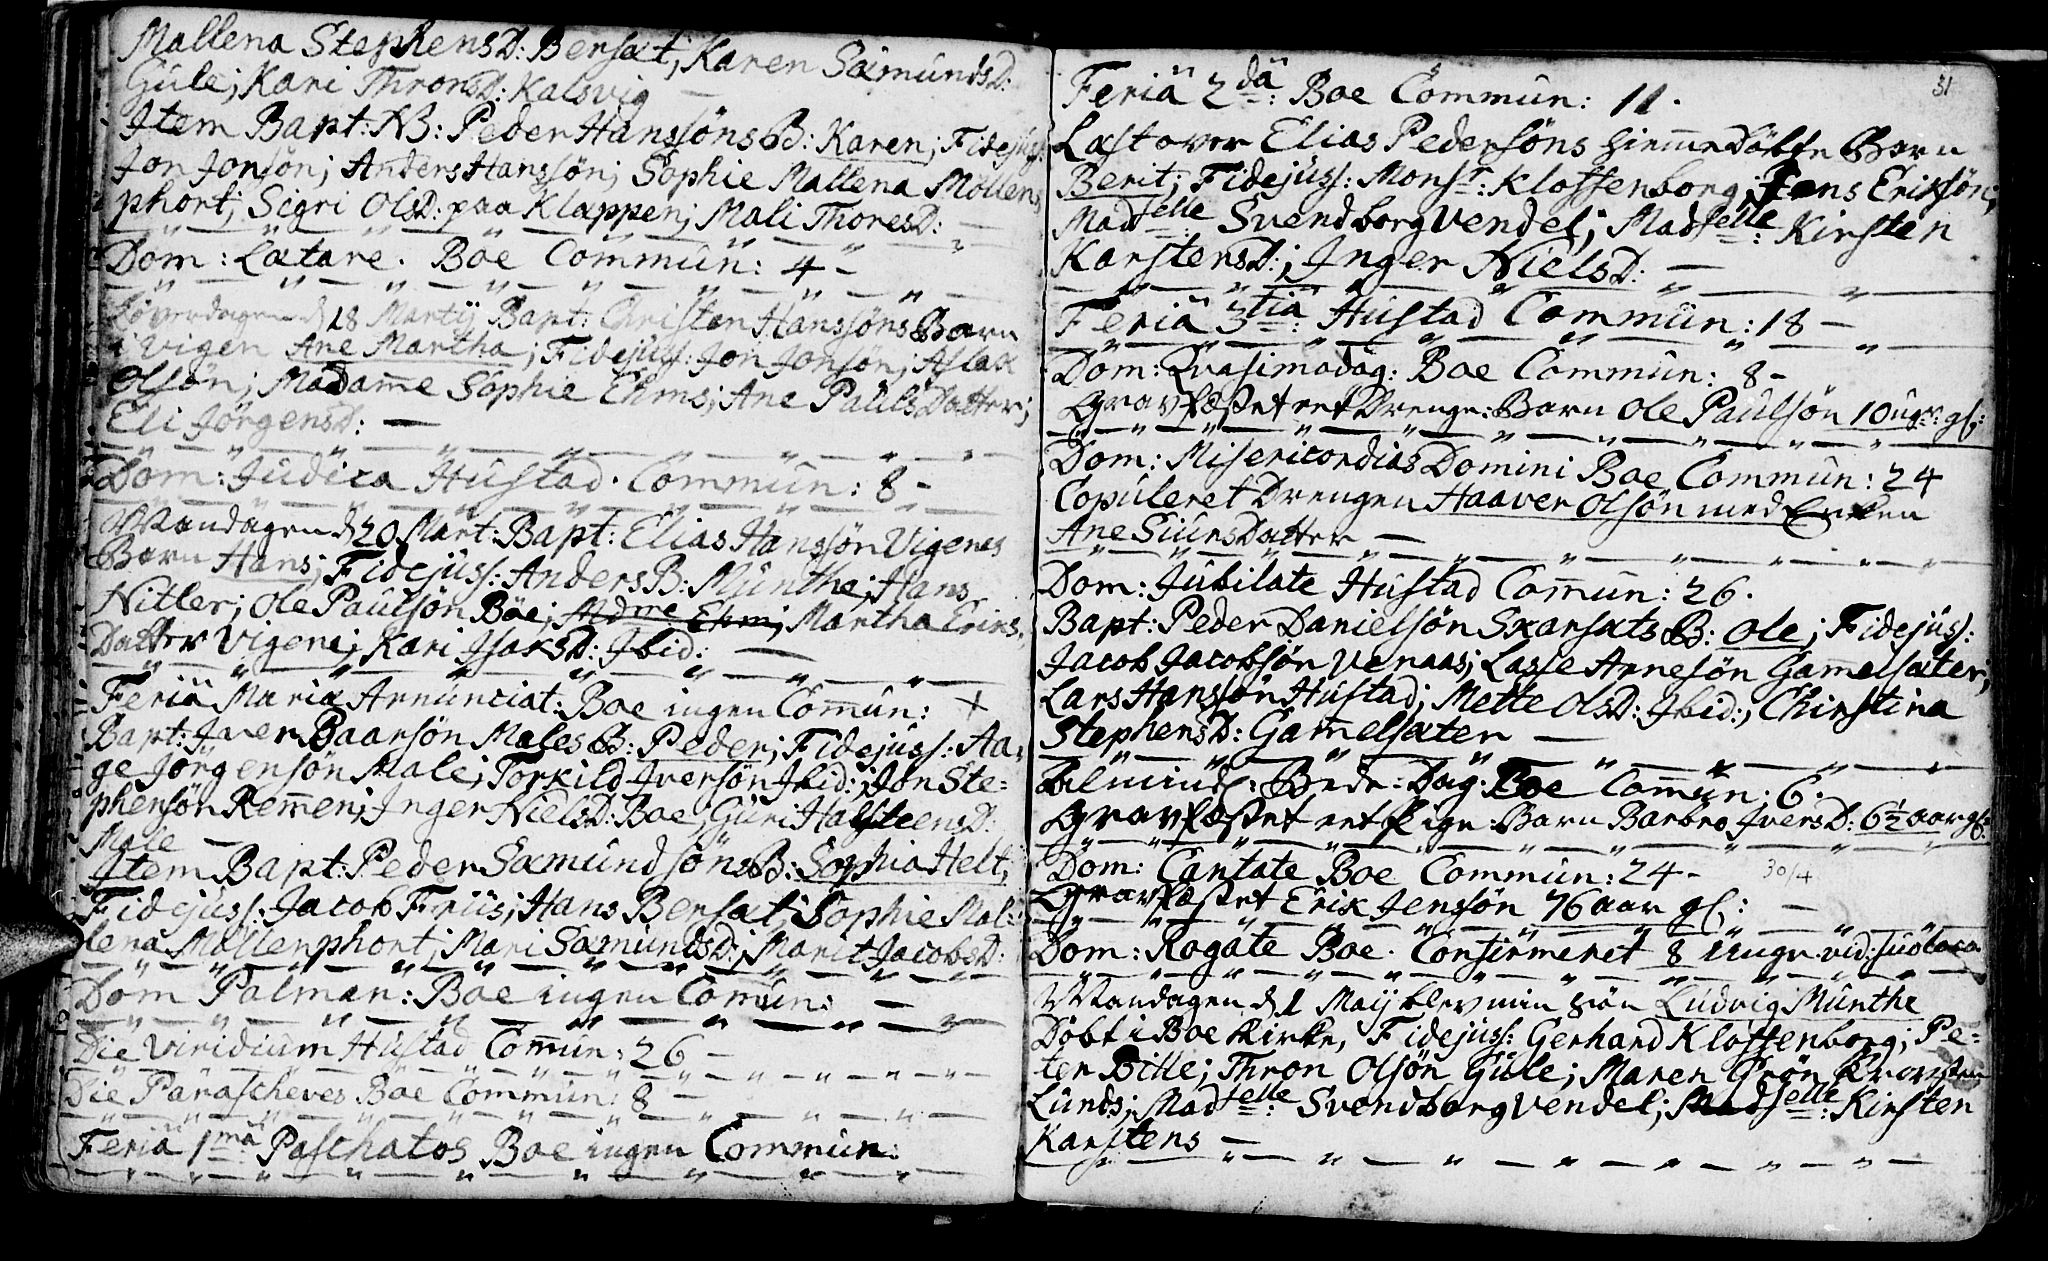 Mallena StephensD: Bersæt; Karen SæmundsD:
Gule; Kari ThronsD: Kalsvig —
Item Bapt: NB: Peder Hanssöns B: Karen; Fidejuss:
Jon Jonsön; Anders Hanssön; Sophie Mallena Möllen,
phort; Sigri OlsD: paa Klappen; Mali ThoresD: —
Dom: Lætare. Boe Commun: 4 –
Löverdagen d 18 Martij Bapt: Christen Hanssöns Barn
i vigen Ane Martha; Fidejuss: Jon Jonsön; Aslak
Olsön; Madame Sophie Ehms; Ane Pauls Datter;
Eli JörgensD: —
Dom: Judica Hustad. Commun: 8 –
Mandagen d 20 Mart: Bapt: Elias Hanssön Vigenes
Barn Hans; Fidejuss: Anders B: Münthe; Hans
Nitter; Ole Paulsön Böe; Mdme Ehm; Martha Erics,
Datter Vigene; Kari IsaksD: Ibid: —
Feria Mariæ Annunciat: Boe ingen Comun: +
Bapt: Iver Baarsön Males B: Peder; Fidejuss: Aa,
ge Jörgensön Male; Torkild Iversön Ibid:; Jon Ste=
phensön Remen; Inger NielsD: Boe; Guri HalsteensD:
Male —
Item Bapt: Peder Sæmundsöns B: Sophia Helt;
Fidejuss: Jacob Friis; Hans Bersæt; Sophie Mal:
lena Möllenphort; Mari SæmundsD:; Marit JacobsD:
Dom Palmar: Boe ingen Comun: —
Die Viridium Hustad Comun: 26 —
Die Parascheves Boe Commun: 8 —
Feria 1ma Paschatos Boe ingen Commun:
31
Feria 2da: Boe Commun: 11.
Læst over Elias Pedersöns hiemmedöbte Barn
Berit; Fidejuss: Monsr: Kloffenborg; Jens Eriksön;
Madselle: Svendborg Vendel; Madselle: Kirsten
KarstensD:; Inger NielsD: —
Feria 3tia: Hustad Commun: 18 —
Dom: Qvasimodog: Boe Commun: 8 –
Gravfæstet et Drenge-Barn Ole Paulsön 10 ugr: gl:
Dom: Misericordias Domini Boe Commun: 24
Copuleret Drengen Haaver Olsön med Enken
Ane Siurs Datter —
Dom: Jubilate Hustad Comun: 26.
Bapt: Peder Danielsön Skarsæts B: Ole; Fidejuss:
Jacob Jacobsön Venaas; Lasse Arnesön Gamelsæter;
Lars Hanssön Hustad; Mette OlsD: Ibid:; Christina
StephensD: Gamelsæter —
Almind: Bede-Dag: Boe Comun: 6.
Gravfæstet et Pige-Barn Barbro IversD: 6½ aar gl:
Dom: Cantate Boe Commun: 24 – 30/4
Gravfæstet Erik Jenssön 76 aar gl: —
Dom: Rogate Boe. Confirmeret 8 unge vid: suo loco
Mandagen d 1 Maij blev min sön Ludvig Münthe
Döbt i Boe Kirke, Fidejuss: Gerhard Kloffenborg; Pe=
ter Ditle; Thron Olsön Gule; Maren Grön
Lunds; Madselle: Svendborg Vendel; Madselle: Kirsten
Karstens —